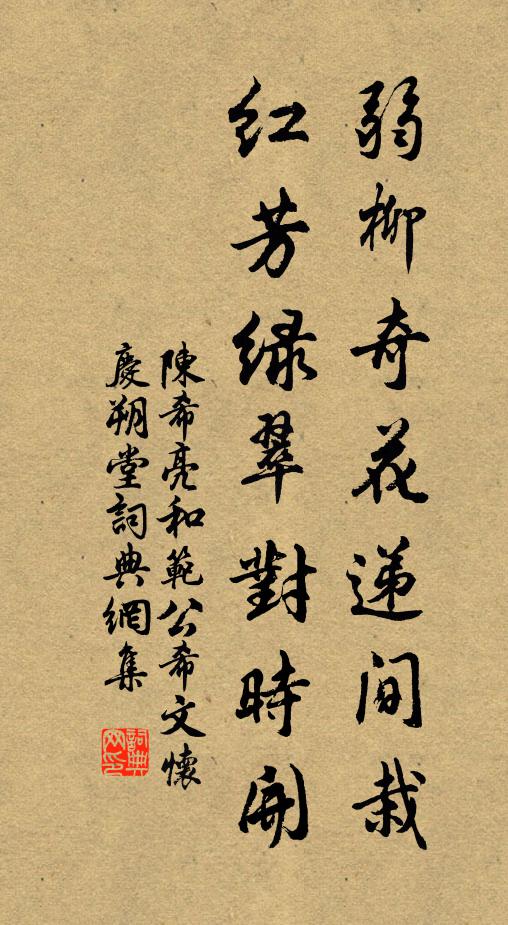 弱柳奇花递间栽
红芳绿翠對時開
陳希亮和範公希文懷
慶朔堂詞典網集
詞典网印